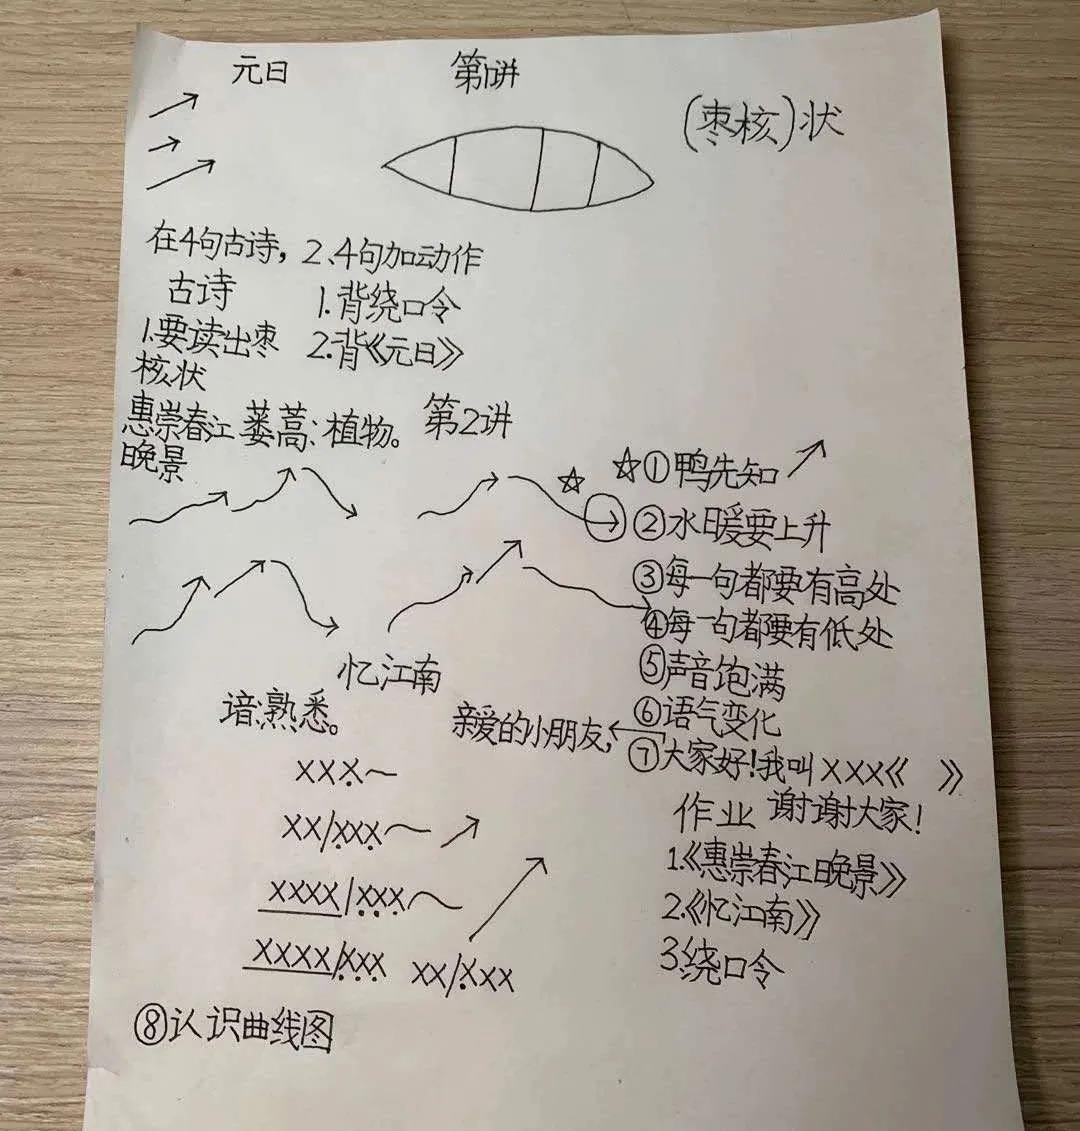 元日 第1讲
(枣核)状
在4句古诗，2、4句加动作
古诗 1.背绕口令
1.要读出枣核状 2.背《元日》
第2讲
惠崇春江晚景 蒌蒿：植物。
☆①鸭先知
②水暖要上升
③每一句都要有高处
④每一句都要有低处
⑤声音饱满
⑥语气变化
⑦大家好！我叫XXX《 》
亲爱的小朋友，
谢谢大家！
忆江南
谙：熟悉。
XXX～
XX/XXX～
XXXX/XXX～
XXXX/XXX XX/XXX
⑧认识曲线图
作业
1.《惠崇春江晚景》
2.《忆江南》
3.绕口令